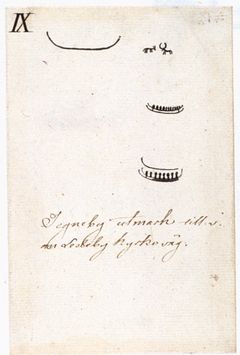 IX
Tegneby utmark till v.
om Lockeby Kyrkoväg.